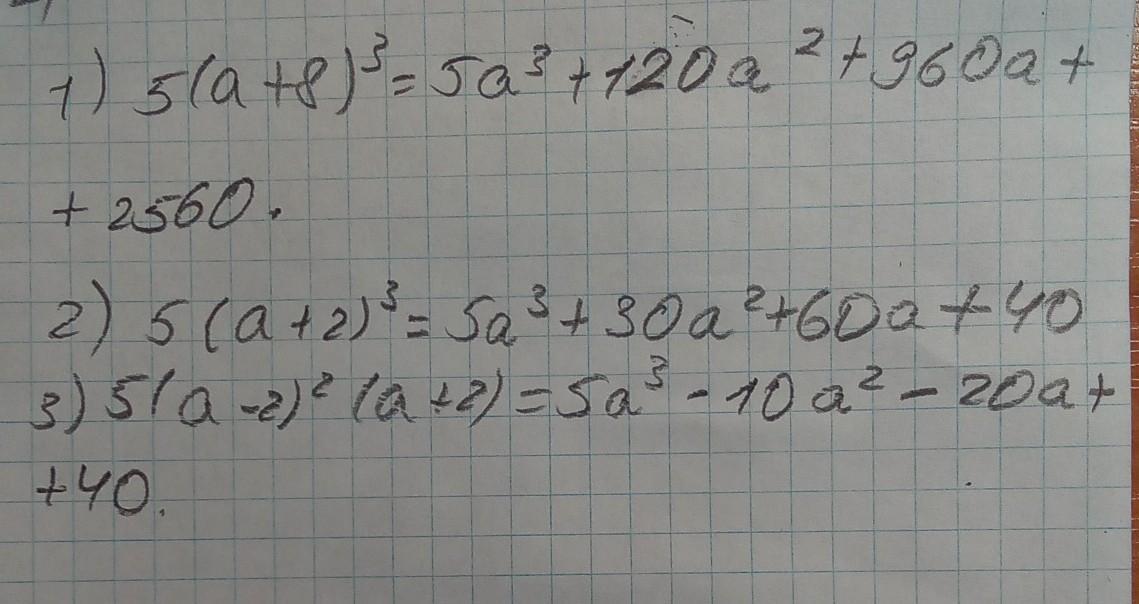 1) 5(a+8)³=5a³+120a²+960a+
+2560.
2) 5(a+2)³=5a³+30a²+60a+40
3) 5(a-2)²(a+2)=5a³-10a²-20a+
+40.